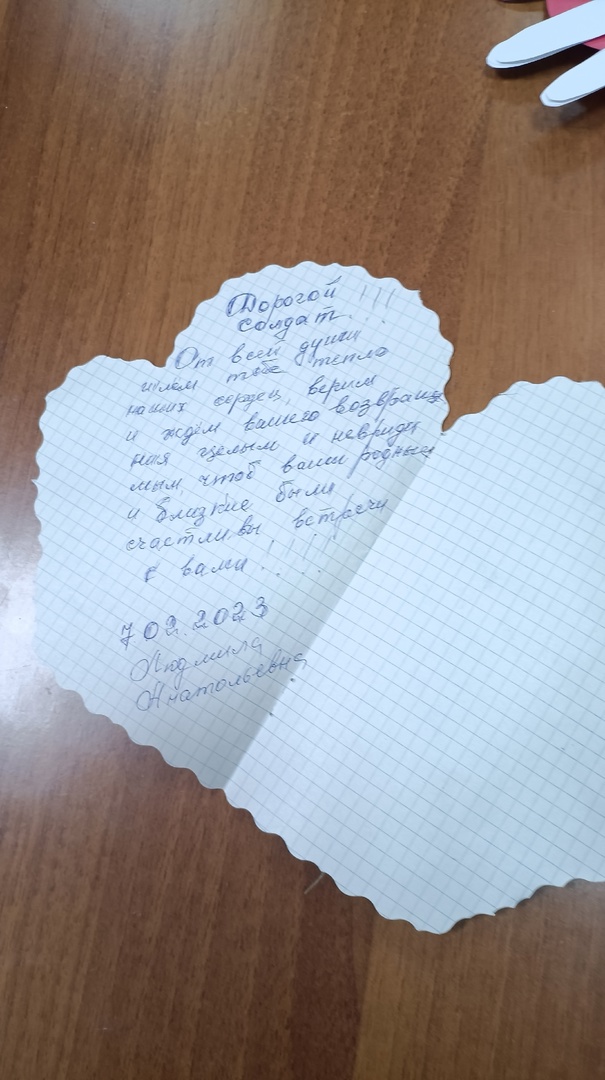 Дорогой
солдат!!!
От всей души
шлем тебе тепло
наших сердец, верим
и ждём вашего возвраще
ния целым и невриди
мым, чтоб ваши родные
и близкие были
счастливы встречи
с вами!!!!!
7 02.2023
Людмила
Анатольевна